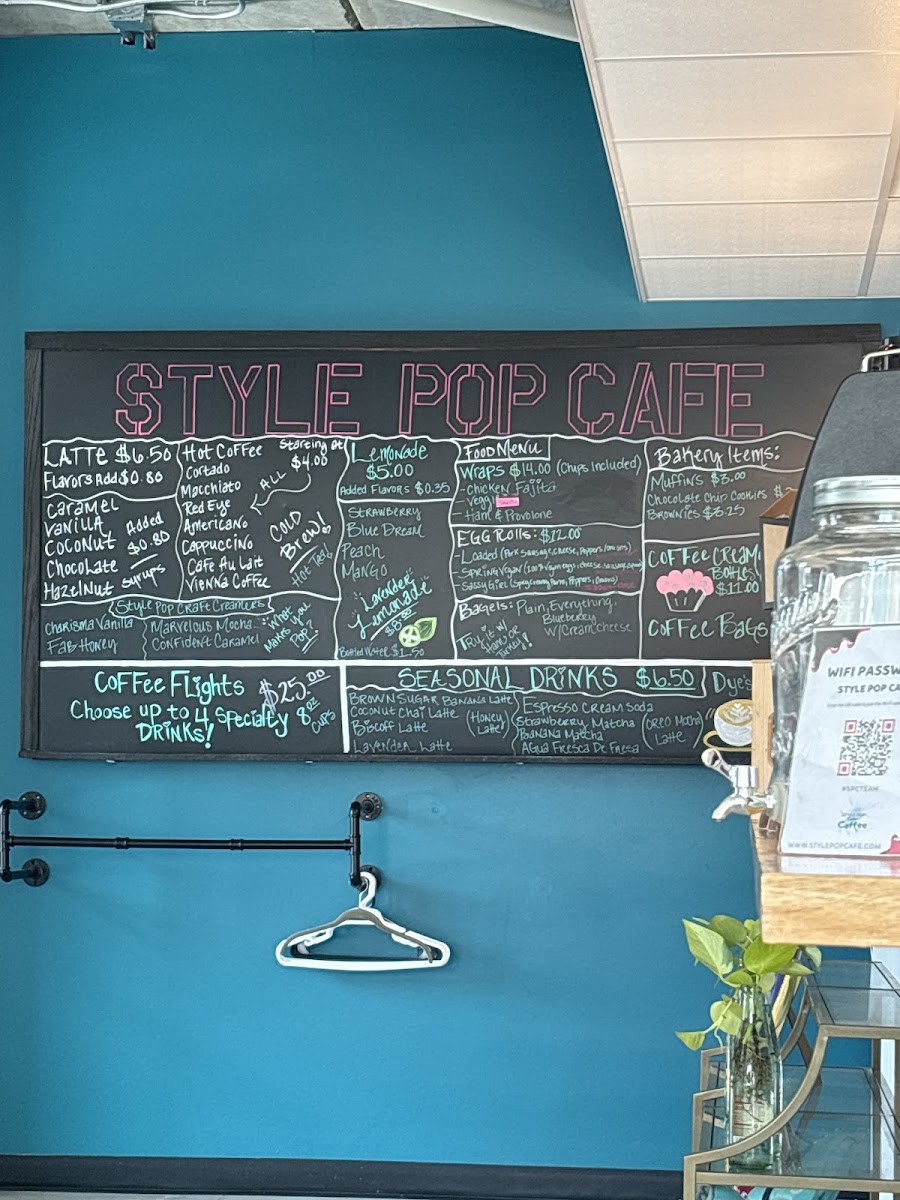 STYLE POP CAFE
LATTE $6.50
Flavors Add $0.80
Caramel
Vanilla
Coconut
Chocolate
Hazelnut
Added
$0.80
Syrups
Hot Coffee
Starting at
$4.00
Cortado
Macchiato
Red Eye
Americano
Cappuccino
Café Au Lait
Vienna Coffee
ALL
COLD
BREW!
Hot Tea!
Style Pop Craft Creamers
Charisma Vanilla
Fab Honey
Marvelous Mocha
Confident Caramel
What
Makes you
Pop?
Lemonade
$5.00
Added Flavors $0.35
Strawberry
Blue Dream
Peach
Mango
Lavender
Lemonade
Bottled Water $1.50
Food Menu
Wraps $14.00 (Chips Included)
- Chicken Fajita
- Vegg
- Ham & Provolone
EGG Rolls: $12.00
- Loaded (Pork Sausage, Cheese, Peppers/onions)
- Spring Vegan
- Sassy Girl
Bagels: Plain, Everything,
Blueberry
w/Cream cheese
Try it w/
Ham or
Turkey!
Bakery Items:
Muffins $3.00
Chocolate Chip Cookies
Brownies $3.25
Coffee Cream
Bottles
$11.00
Coffee Bags
Coffee Flights
$25.00
Choose up to 4 Specialty 8oz
Drinks! Cups
SEASONAL DRINKS $6.50
Brown Sugar Banana Latte
Coconut Chai Latte
Biscoff Latte
Lavender Latte
(Honey
Latte)
Espresso Cream Soda
Strawberry Matcha
Banana Matcha
Agua Fresca De Fresa
(Oreo Mocha
Latte)
Dye's
WIFI PASSW
STYLE POP CA
#SPCTEAM
Coffee
WWW.STYLEPOPCAFE.COM